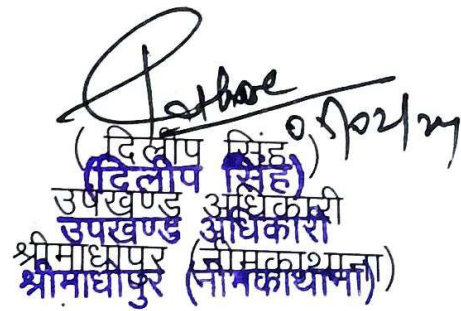 (दिलीप सिंह)
(दिलीप सिंह)
उपखण्ड अधिकारी
उपखण्ड अधिकारी
श्रीमाधोपुर (नीमकाथाना)
श्रीमाधोपुर (नीमकाथाना)